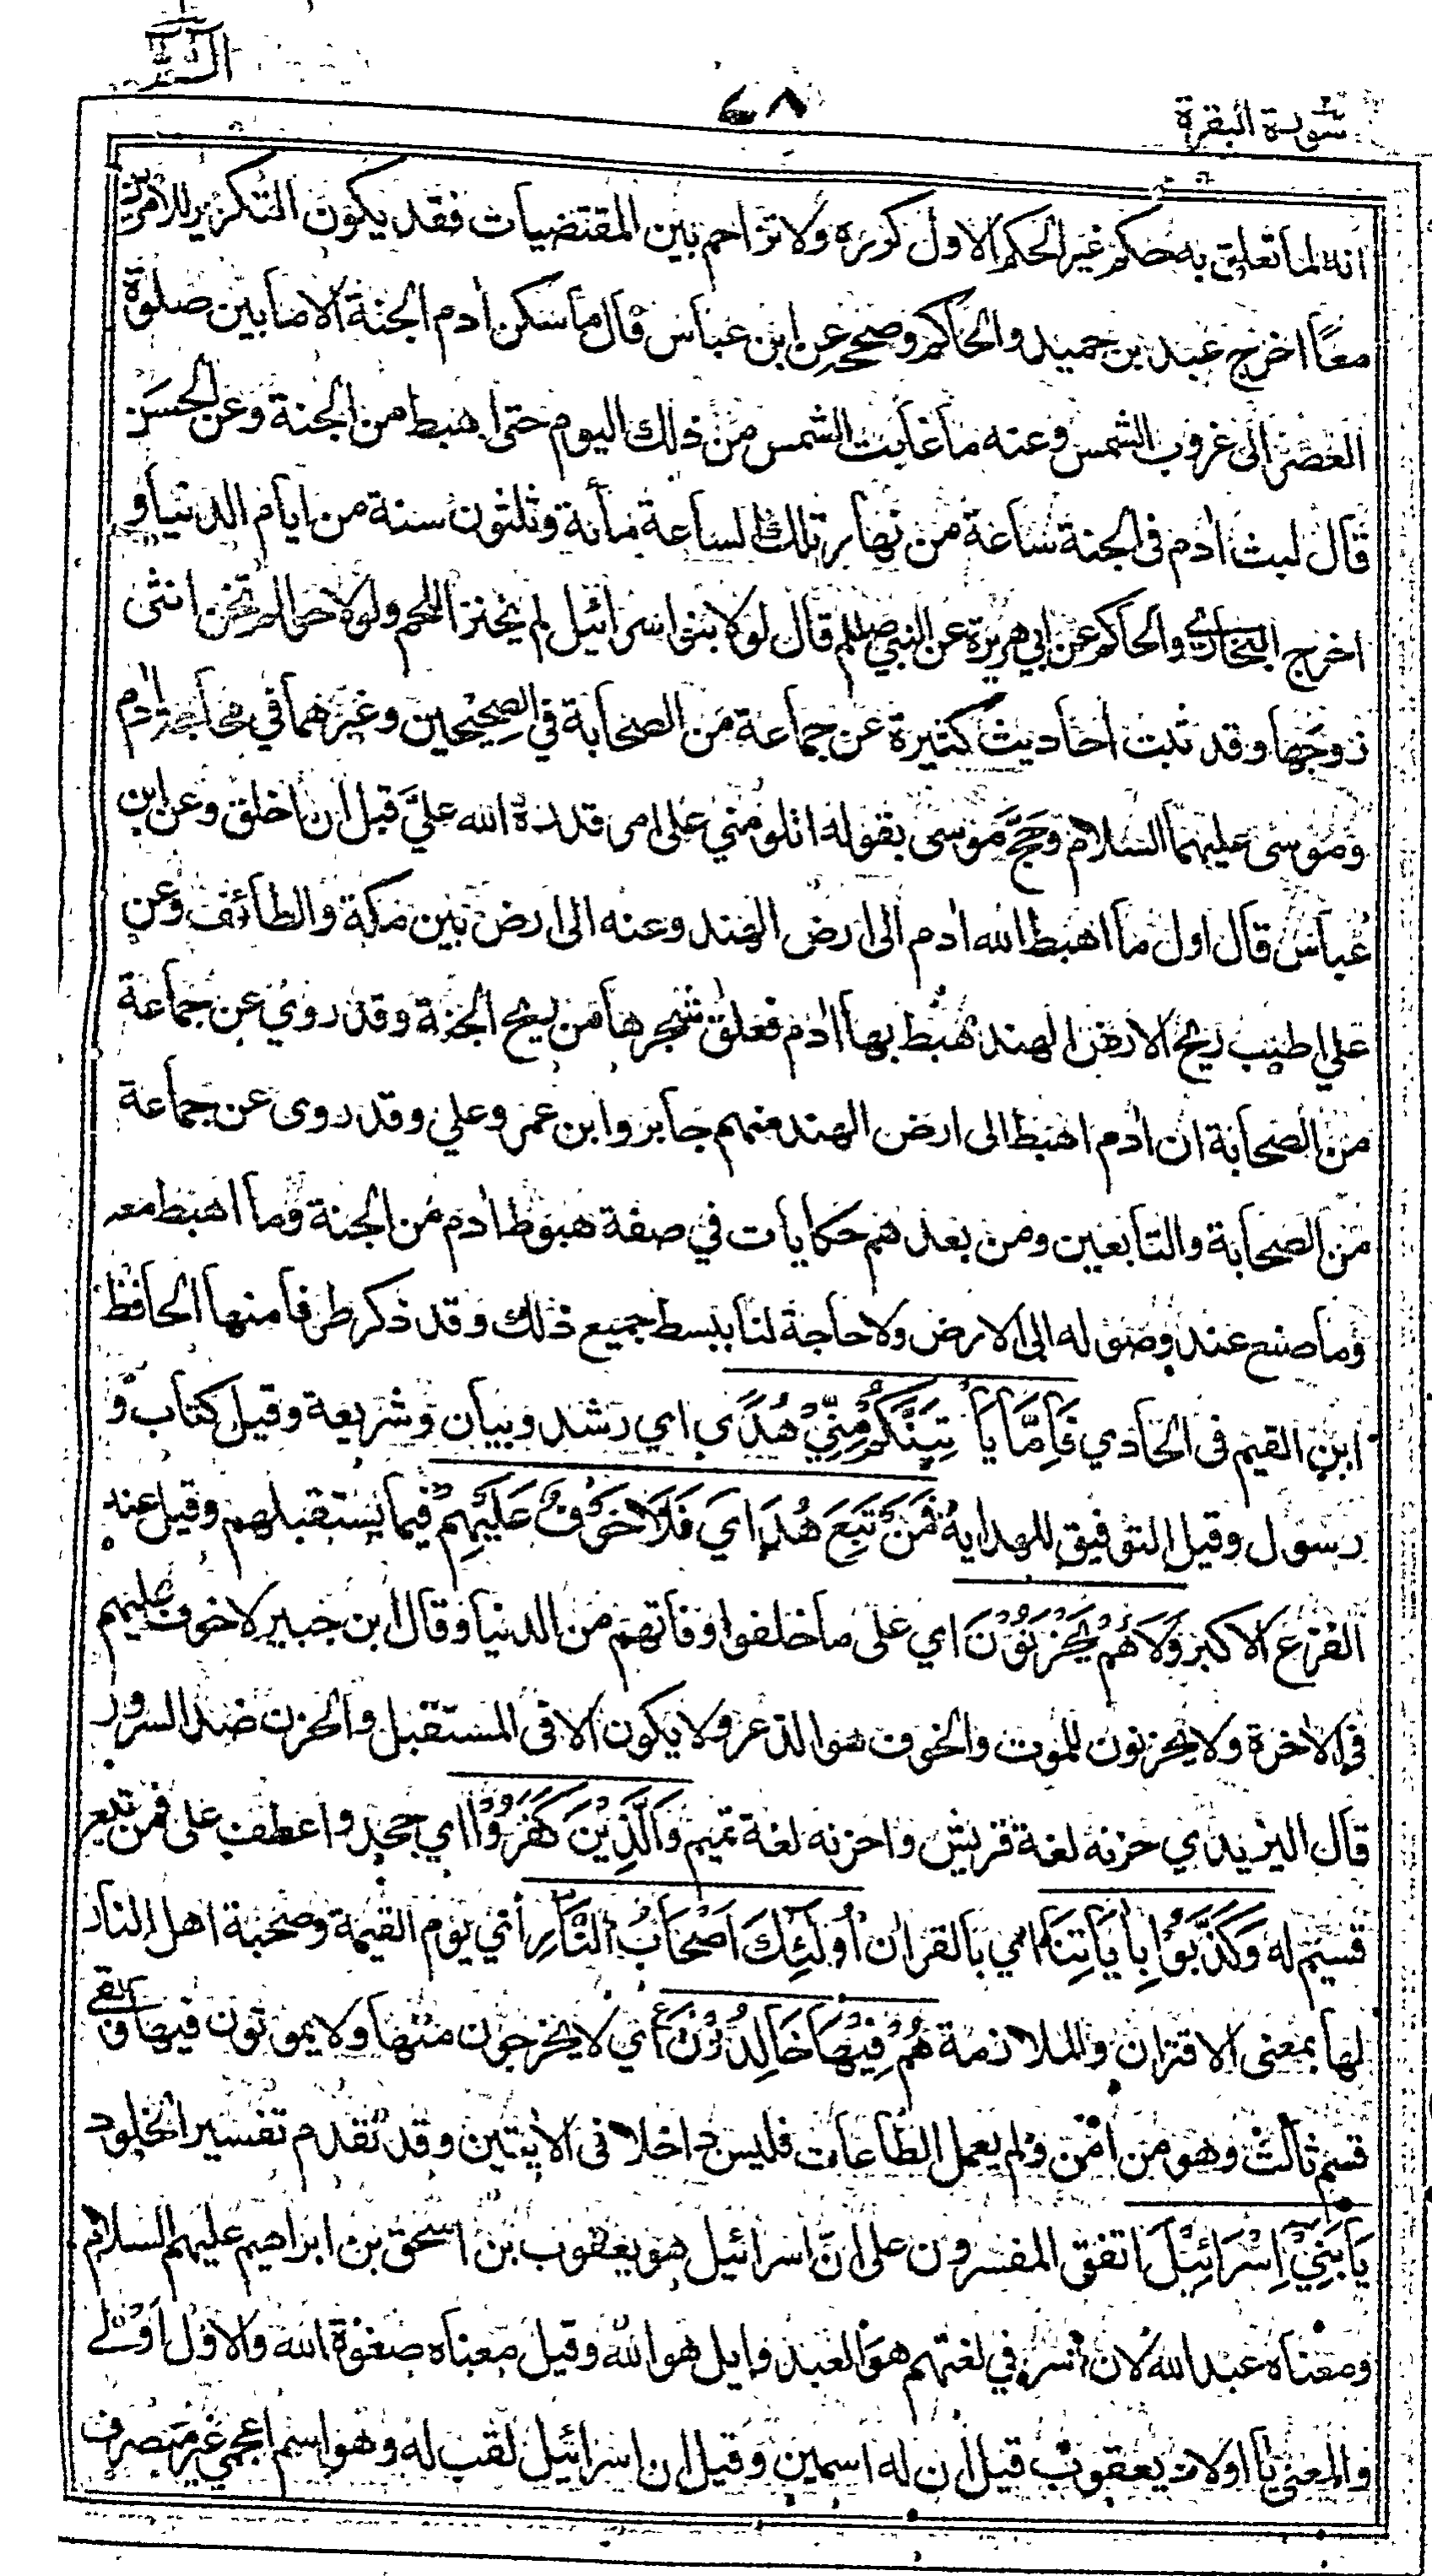 سورة البقرة
٦٨
انه لما تعلق به حكم غير الحكم الاول كرره ولا تزاحم بين المقتضيات فقد يكون التكرير للامرين
معا اخرج عبد بن حميد والحاكم وصححه عن ابن عباس قال ما سكن ادم الجنة الا ما بين صلوة
العصر الى غروب الشمس وعنه ما غابت الشمس من ذلك اليوم حتى اهبط من الجنة وعن الحسن
قال لبث ادم فى الجنة ساعة من نهار تلك الساعة مائة وثلثون سنة من ايام الدنيا و
اخرج البخاري والحاكم عن ابي هريرة عن النبي صللم قال لولا بنوا سرائيل لم يخنز اللحم ولولا حوا لم تخن انثى
زوجها وقد ثبت احاديث كثيرة عن جماعة من الصحابة في الصحيحين وغيرهما في محاجة ادم
وموسى عليهما السلام وحج موسى بقوله اتلومني على امر قدره الله عليّ قبل ان اخلق وعن ابن
عباس قال اول ما اهبط الله ادم الى ارض الهند وعنه الى ارض بين مكة والطائف وعن
علي اطيب ريح الارض الهند هبط بها ادم فعلق شجرها من ريح الجنة وقد روي عن جماعة
من الصحابة ان ادم اهبط الى ارض الهند منهم جابر وابن عمر وعلي وقد روى عن جماعة
من الصحابة والتابعين ومن بعدهم حكايات في صفة هبوط ادم من الجنة وما اهبط معه
وما صنع عند وصوله الى الارض ولا حاجة لنا ببسط جميع ذلك وقد ذكر طرفا منها الحافظ
ابن القيم فى الحادي فَاِمَّا يَأْتِيَنَّكُمْ مِنِّيْ هُدًى اي رشد وبيان وشريعة وقيل كتاب و
رسول وقيل التوفيق للهداية فَمَنْ تَبِعَ هُدَايَ فَلَا خَوْفٌ عَلَيْهِمْ فيما يستقبلهم وقيل عند
الفزع الاكبر وَلَا هُمْ يَحْزَنُوْنَ اي على ما خلفوا وفاتهم من الدنيا وقال ابن جبير لا خوف عليهم
فى الاخرة ولا يحزنون للموت والخوف هو الذعر ولا يكون الا فى المستقبل والحزن ضد السرور
قال اليزيدي حزنه لغة قريش واحزنه لغة تميم وَالَّذِيْنَ كَفَرُوْا اي جحدوا عطف على فمن تبع
قسيم له وَكَذَّبُوْا بِاٰيَاتِنَا اي بالقران اُولٰئِكَ اَصْحَابُ النَّارِ اي يوم القيمة وصحبة اهل النار
لها بمعنى الاقتران والملازمة هُمْ فِيْهَا خَالِدُوْنَ اي لا يخرجون منها ولا يموتون فيها بقي
قسم ثالث وهو من امن ولم يعمل الطاعات فليس داخلا فى الايتين وقد تقدم تفسير الخلود
يَا بَنِيْ اِسْرَائِيْلَ اتفق المفسرون على ان اسرائيل هو يعقوب بن اسحق بن ابراهيم عليهم السلام
ومعناه عبد الله لان اسر في لغتهم هو العبد وايل هو الله وقيل معناه صفوة الله والاول اولى
والمعنى يا اولاد يعقوب قيل ان له اسمين وقيل ان اسرائيل لقب له وهو اسم اعجمي غير منصرف